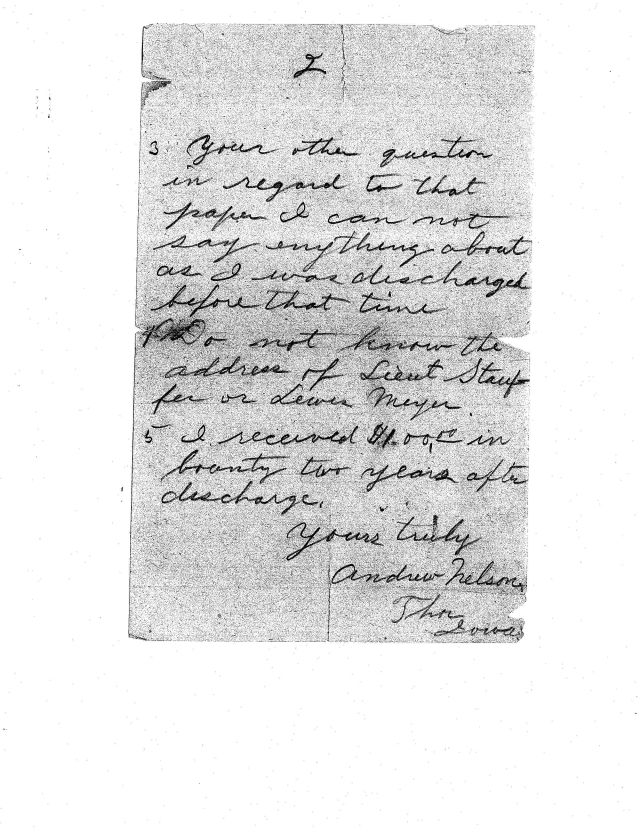 2
3 Your other question
in regard to that
paper I can not
say enything about
as I was discharged
before that time
4 Do not know the
address of Lieut Stauf
fer or Lewis Meyer.
5 I received $100,00 in
bounty two years after
discharge.
Yours truly
Andrew Nelson,
Thor
Iowa